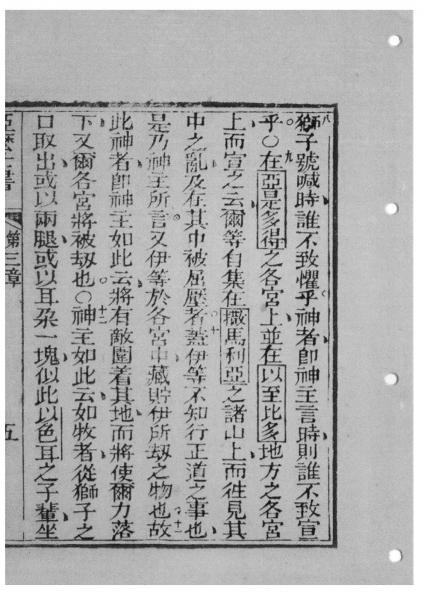 八獅子號喊時誰不致懼乎神者卽神主言時則誰不致宣
乎○九在亞是多得之各宮上並在以至比多地方之各宮
上而宣之云爾等自集在撒馬利亞之諸山上而徃見其
中之亂及在其中被屈壓者十蓋伊等不知行正道之事也
是乃神主所言又伊等於各宮中藏貯伊所刼之物也十一故
此神者卽神主如此云將有敵圍着其地而將使爾力落
下又爾各宮將被刼也○十二神主如此云如牧者從獅子之
口取出或以兩腿或以耳朶一塊似此以色耳之子輩坐
第三章 五